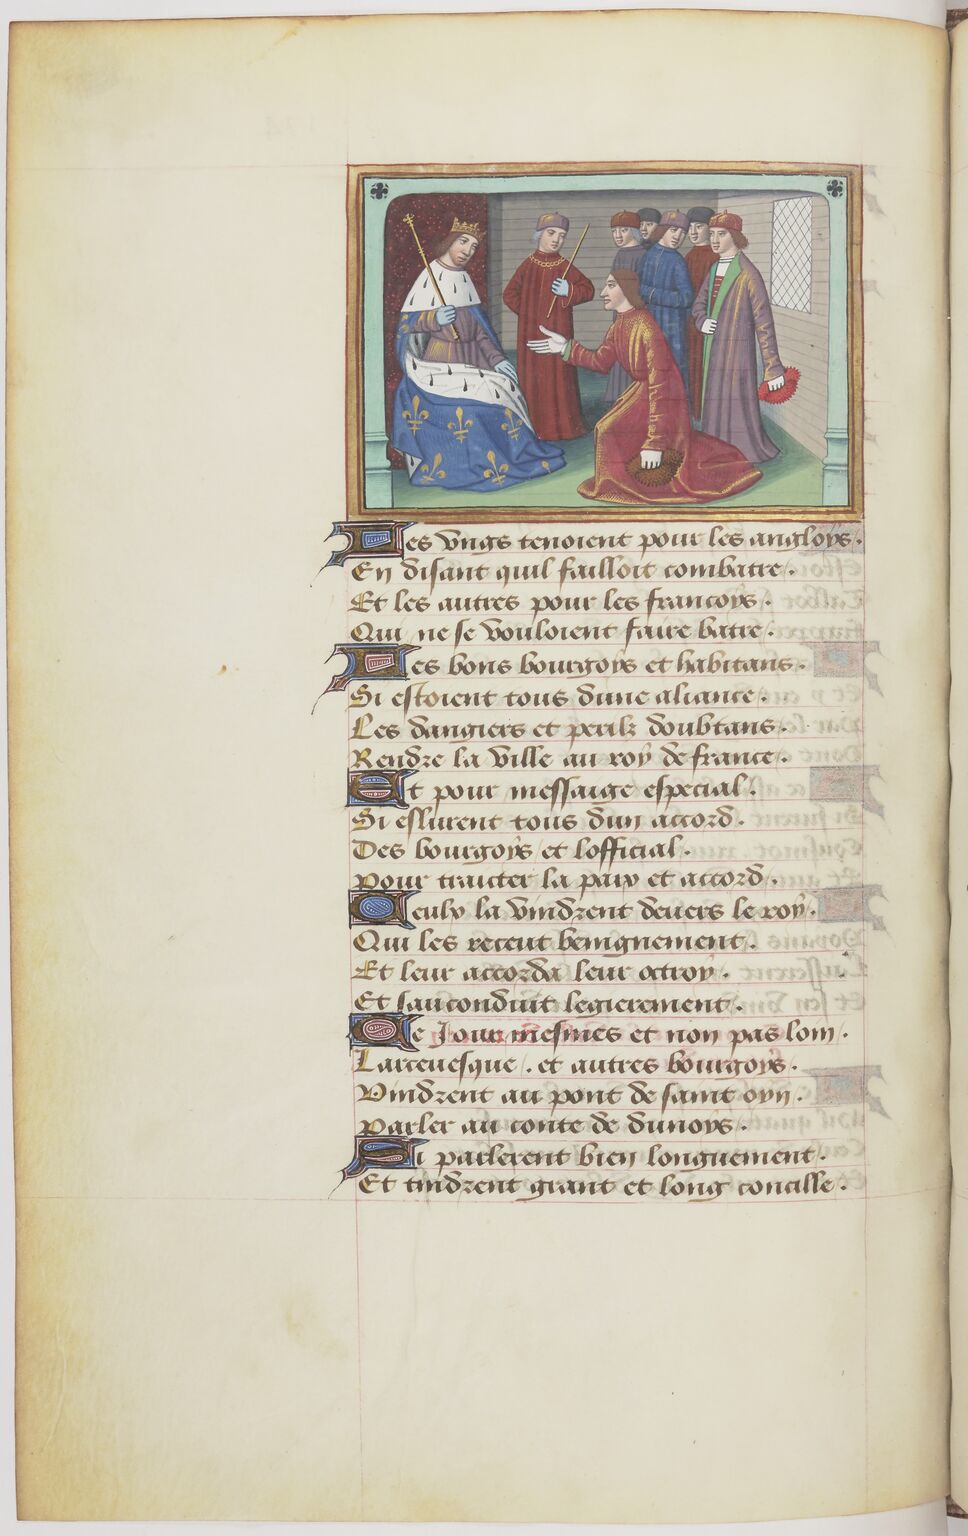 Les vngs tenoient pour les angloys.
En disant quil failloit combatre.
Et les autres pour les francoys.
Qui ne se vouloient faire batre.
Les bons bourgoys et habitans.
Si estoient tous dune aliance.
Les dangiers et perilz doubtans.
Rendre la ville au roy de france.
Et pour messaige especial.
Si eslurent tous dun accord.
Des bourgoys et lofficial.
pour traicter la paix et accord.
Ceulx la vindrent deuers le roy.
Qui les receut benignement.
Et leur accorda leur octroy.
Et sauconduit legierement.
Ce Jour mesmes et non pas loin.
Larceuesque. et autres bourgoys.
Vindrent au pont de saint oyn.
parler au conte de dunoys.
Si parlerent bien longuement.
Et tindrent grant et long concille.